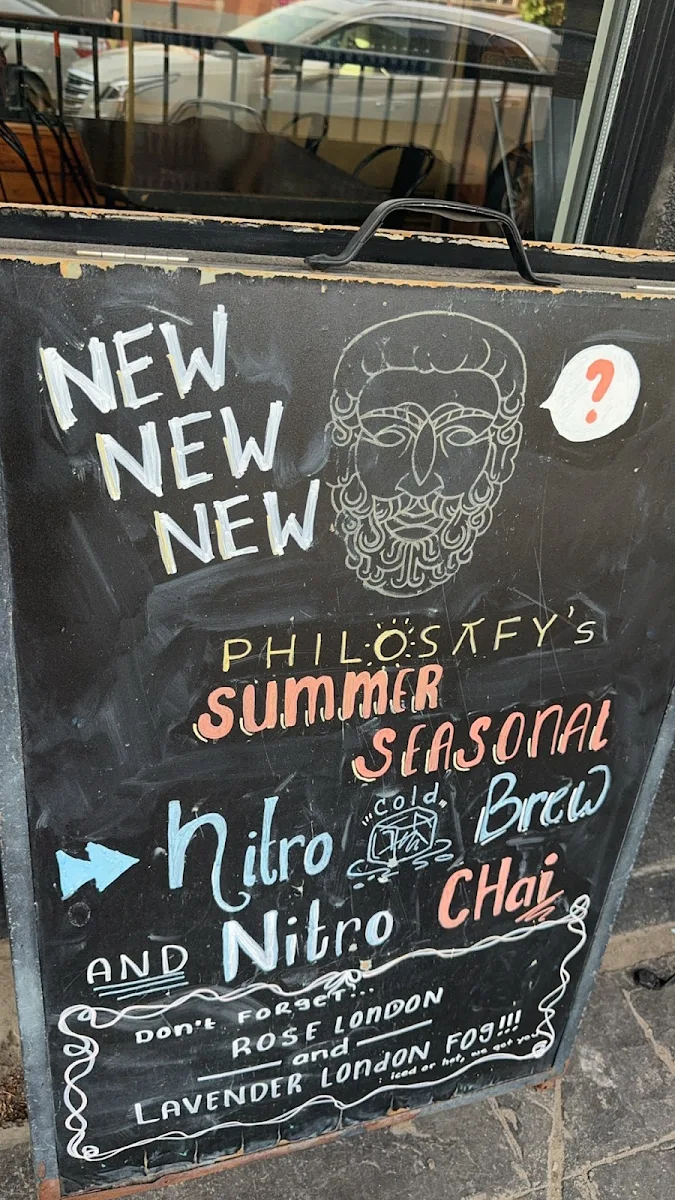 NEW
NEW
NEW
?
PHILOSAFY'S
SUMMER
SEASONAL
Nitro "Cold" Brew
AND Nitro CHai
DON'T FORGET!...
ROSE LONDON
and
LAVENDER LONDON FOG!!!
iced or hot, we got you